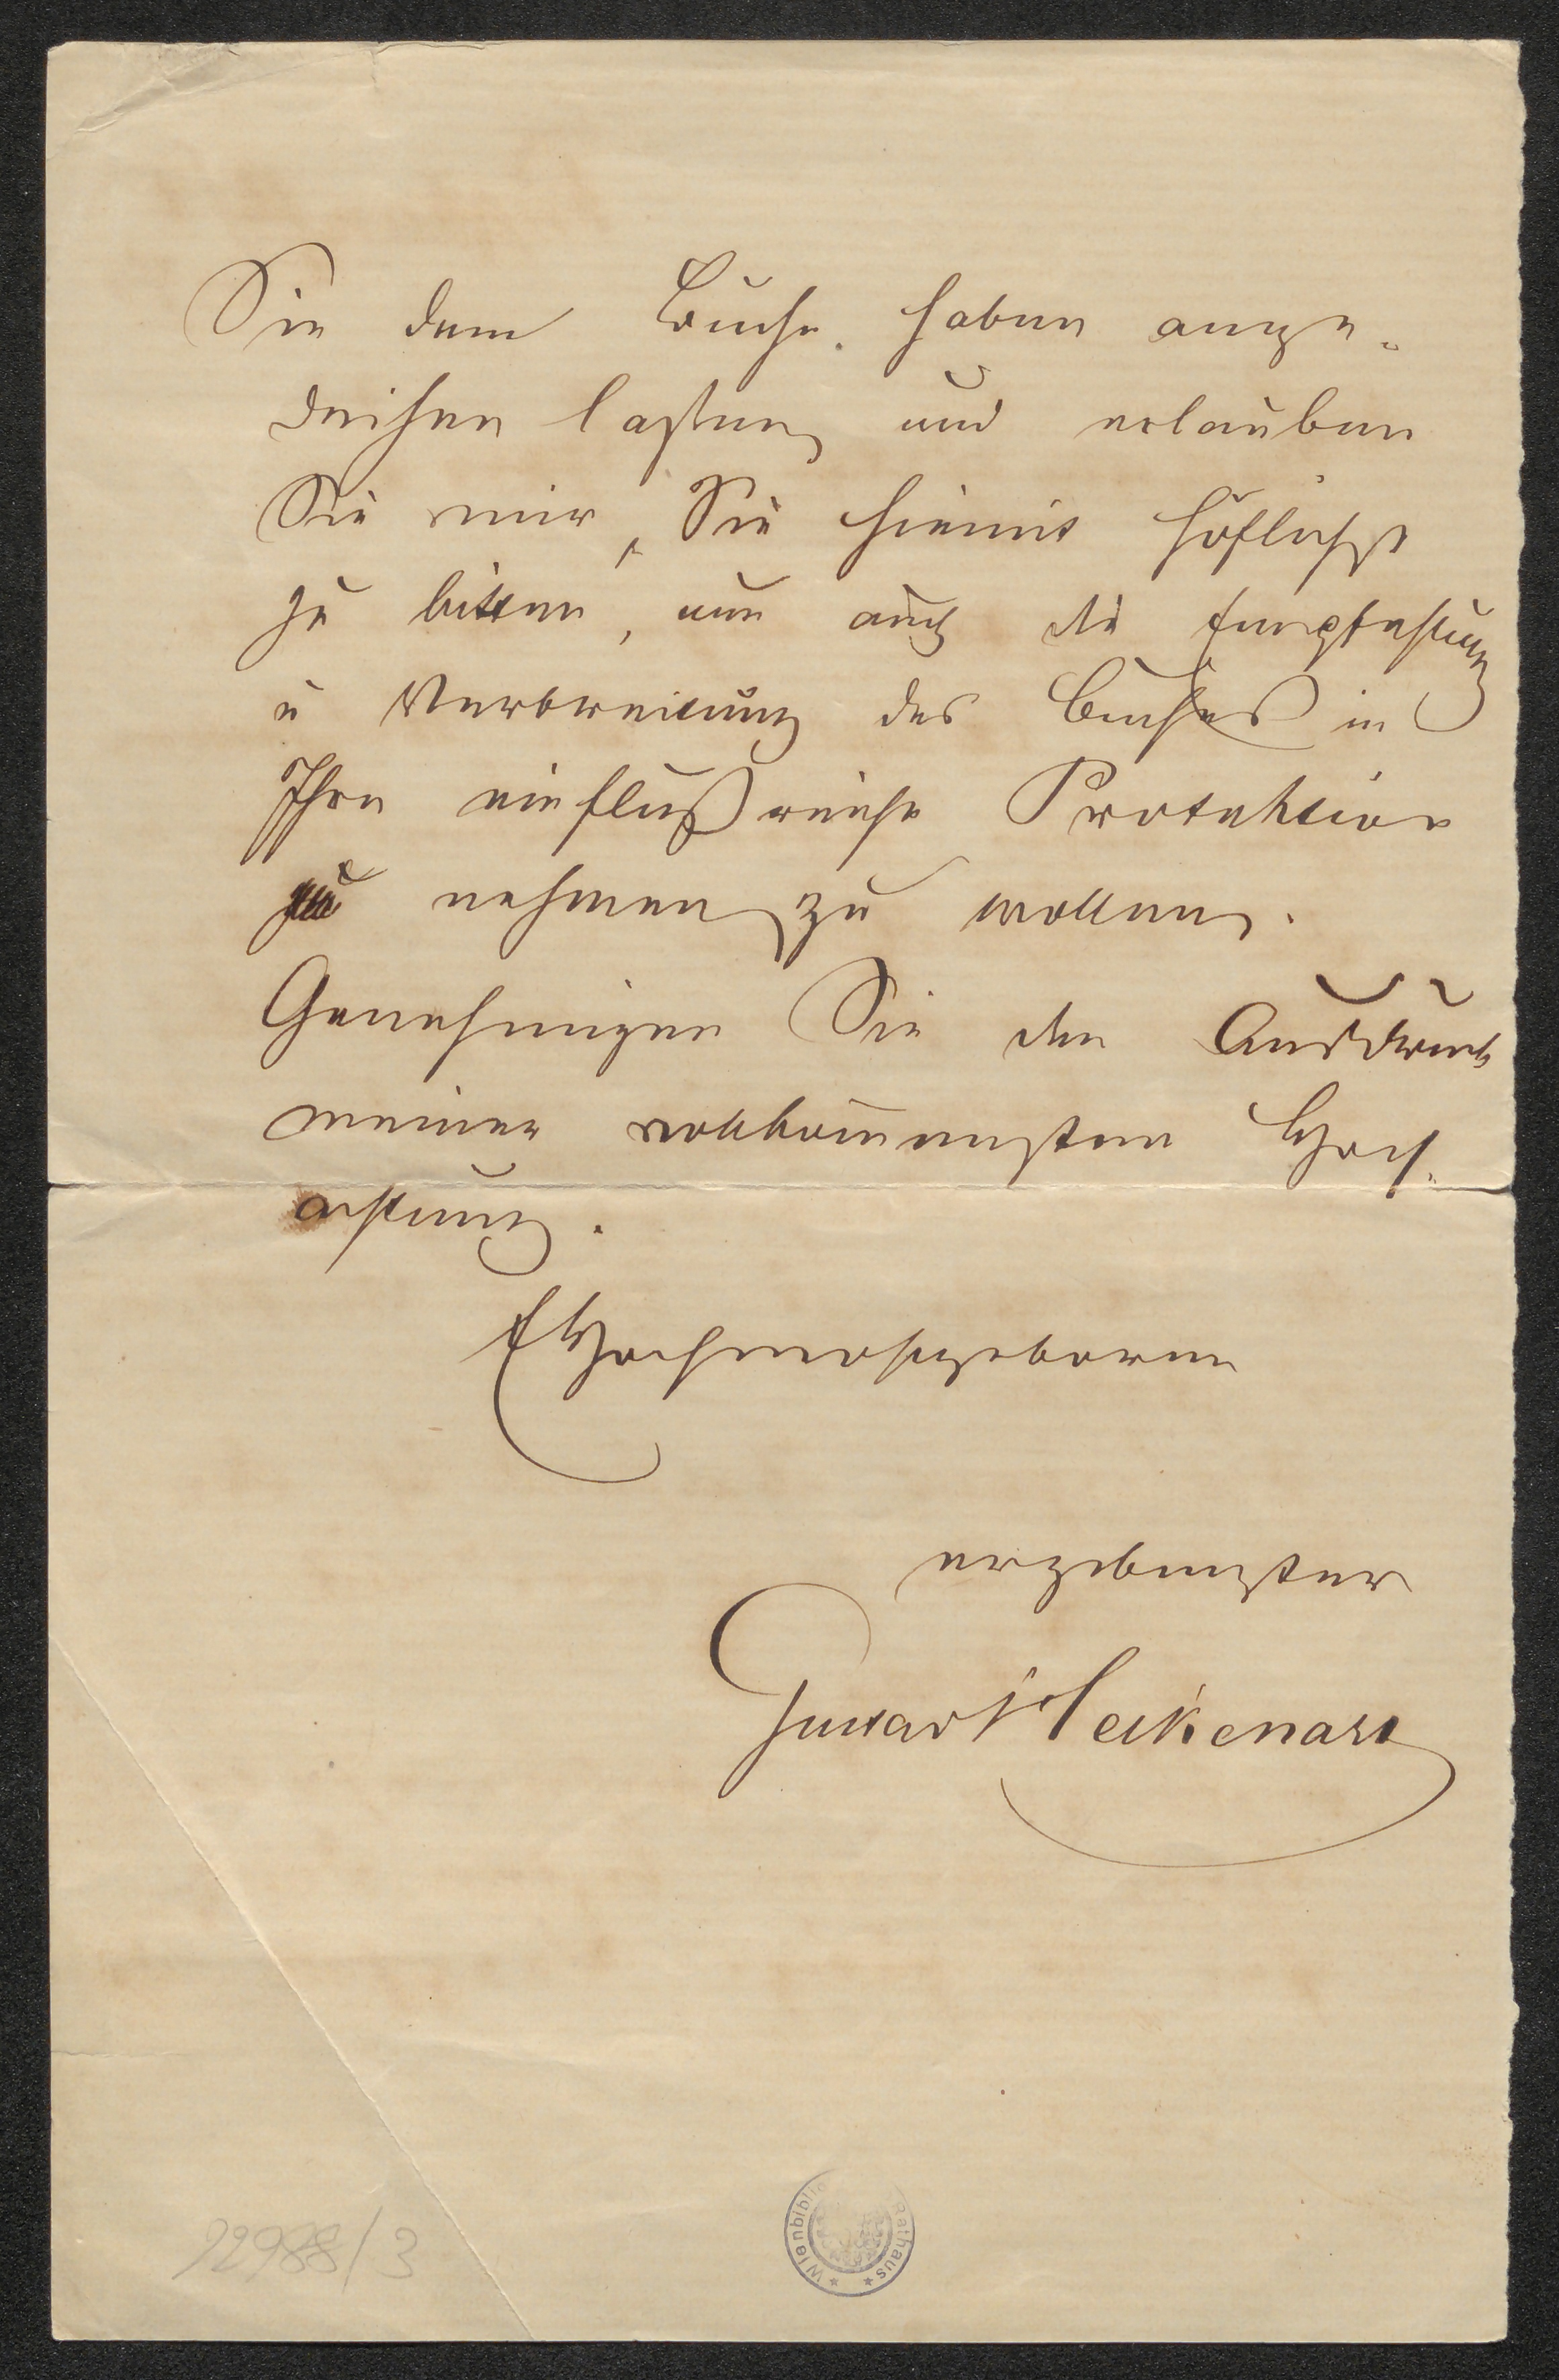 Sie dem Buche haben ange-
deihen lassen und erlauben
Sie mir, Sie hiemit höflichst
zu bitten, nun auch die Empfehlung
u Verbreitung des Buches in
Ihre einflußreiche Protektion
nehmen zu wollen.
Genehmigen Sie den Ausdruck
meiner vollkommensten Hoch-
achtung.
E Hochwohlgeboren
ergebenster
Gustav Heckenast
12988/3
Wienbibliothek Rathaus